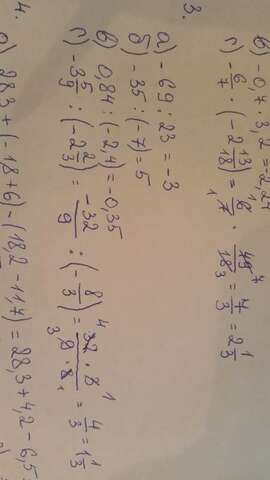 в) -0,7 · 3,2 = -2,24
г) -6/7 · (-2 13/18) = 6/7 · 49/18 = 7/3 = 2 1/3
3.
а) -69 : 23 = -3
б) -35 : (-7) = 5
в) 0,84 : (-2,4) = -0,35
г) -3 5/9 : (-2 2/3) = -32/9 : (-8/3) = 4/3 = 1 1/3
4.
а) 28,3 + (-1,8 + 6) - (18,2 - 11,7) = 28,3 + 4,2 - 6,5